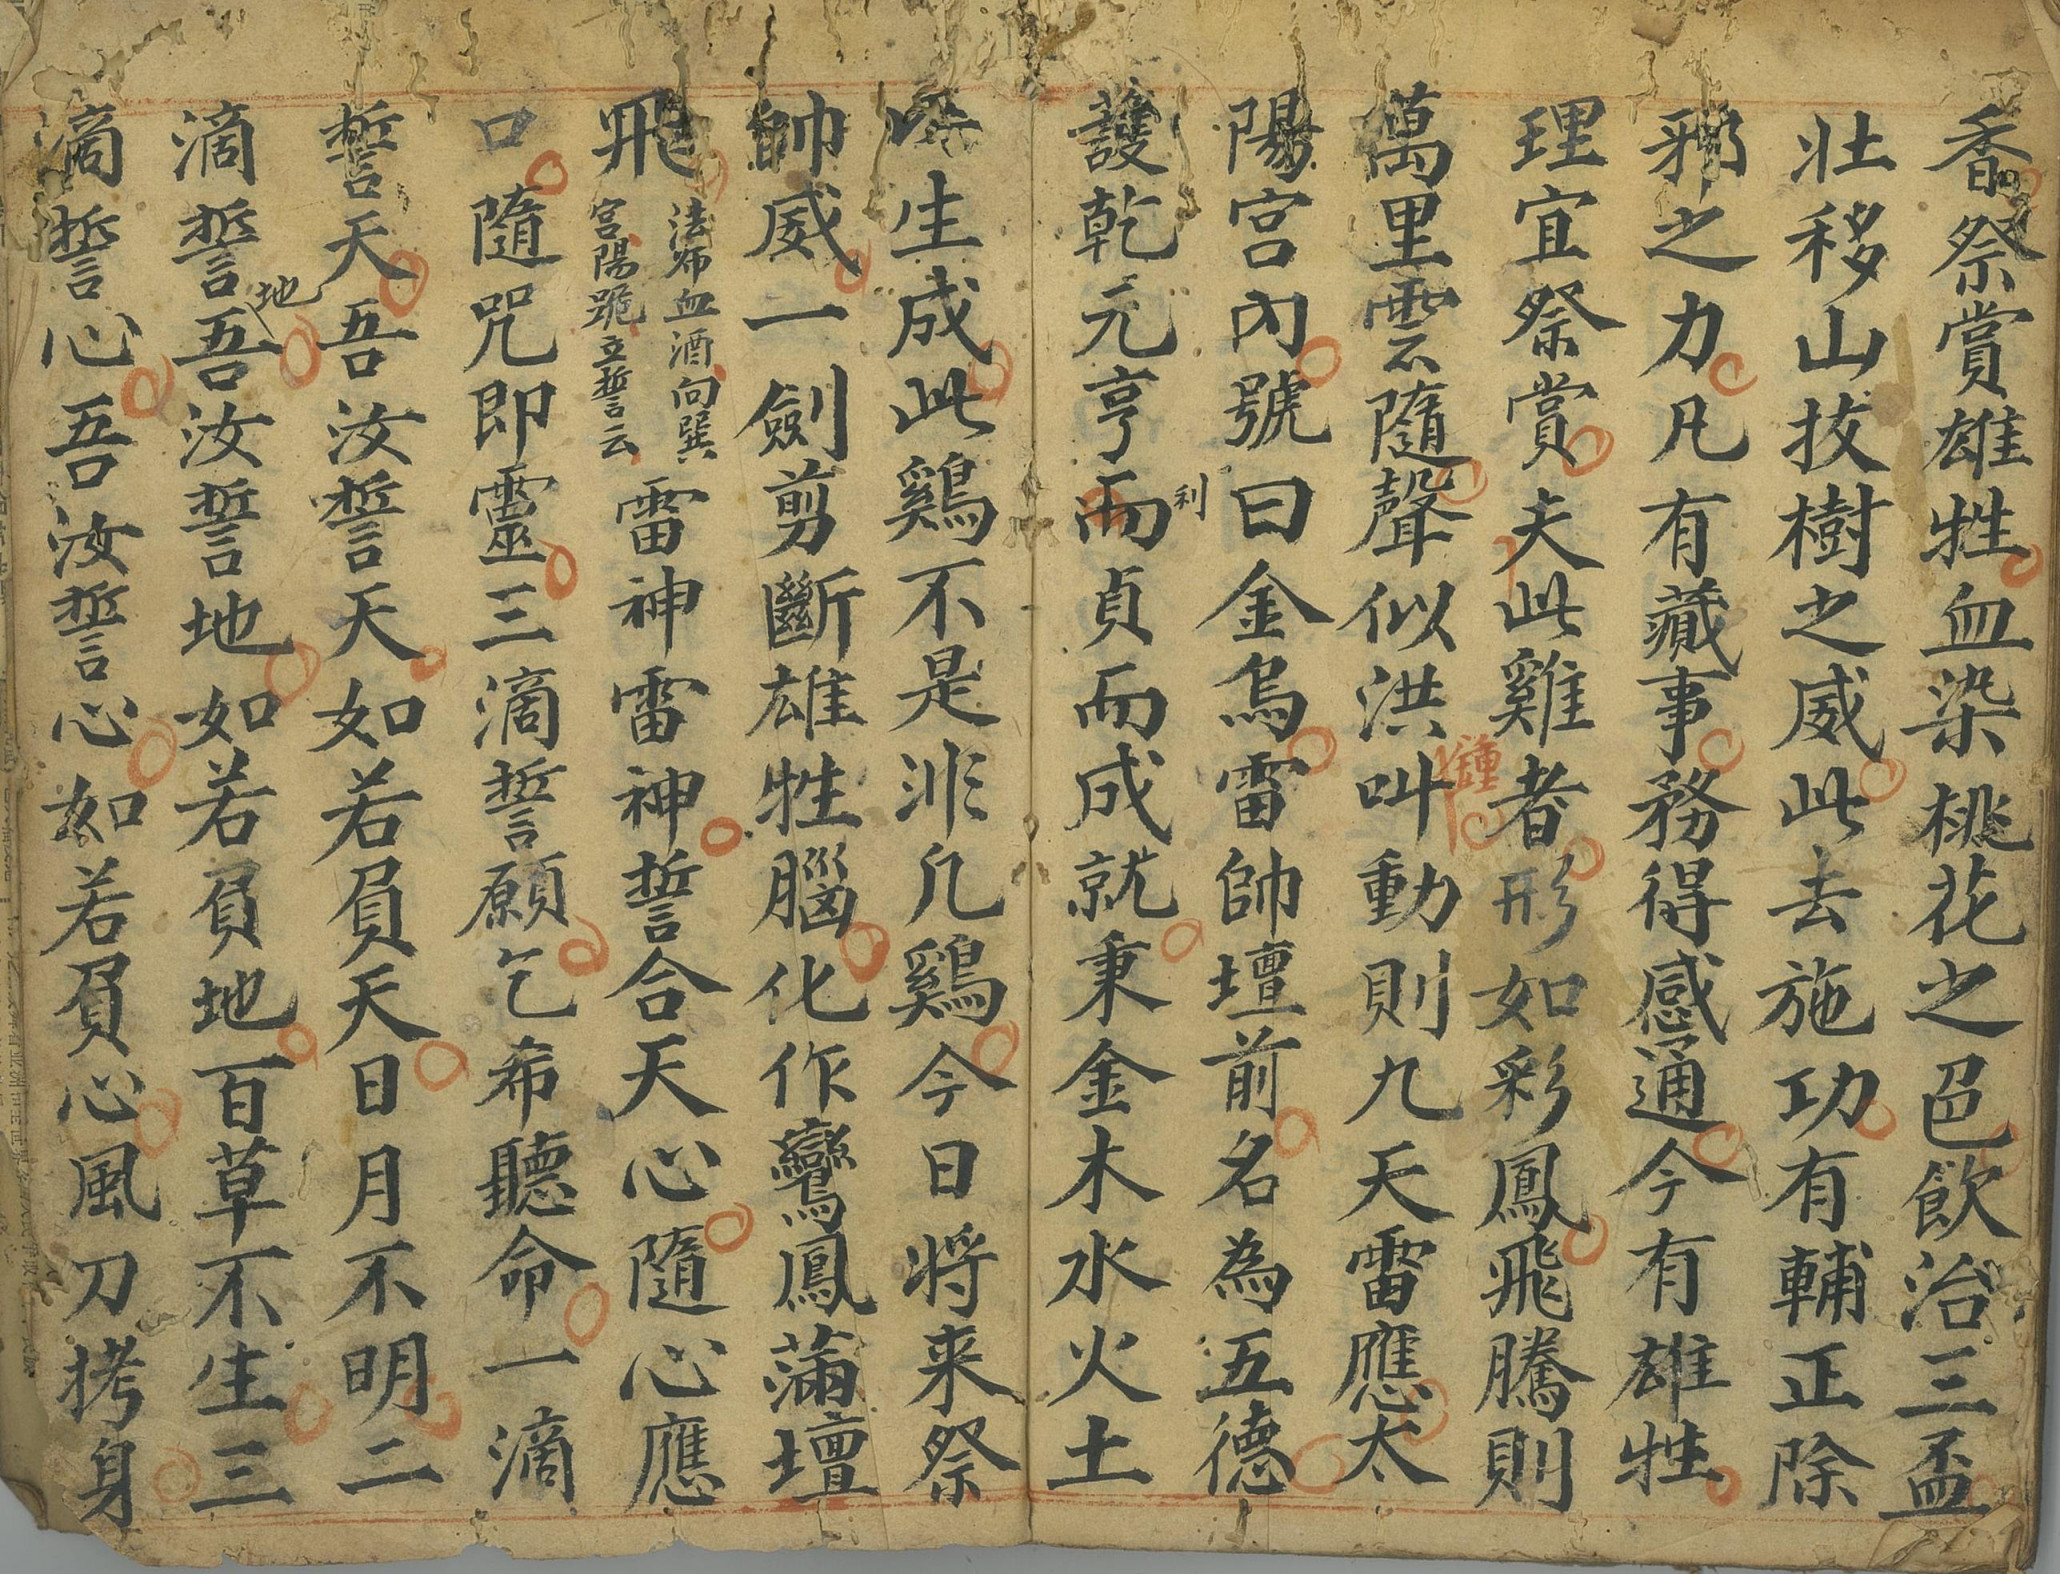 香祭賞雄牲血染桃花之色飲治三盃
壯移山拔樹之威此去施功有輔正除
邪之力凡有藏事務得感通今有雄牲
理宜祭賞夫此雞者形如彩鳳飛騰則
鍾
萬里雲隨聲似洪叫動則九天雷應太
陽宮內號曰金烏雷帥壇前名為五德
護乾元亨而貞而成就秉金木水火土
利
生成此鷄不是非凡鷄今日將来祭
帥威一劍剪斷雄牲腦化作鸞鳳滿壇
飛
法師血酒向巽
宮陽跪立誓云
雷神雷神誓合天心隨心應
口隨咒即靈三滴誓願乞希聽命一滴
誓天吾汝誓天如若負天日月不明二
滴誓吾汝誓地如若負地百草不生三
地
滴誓心吾汝誓心如若負心風刀拷身